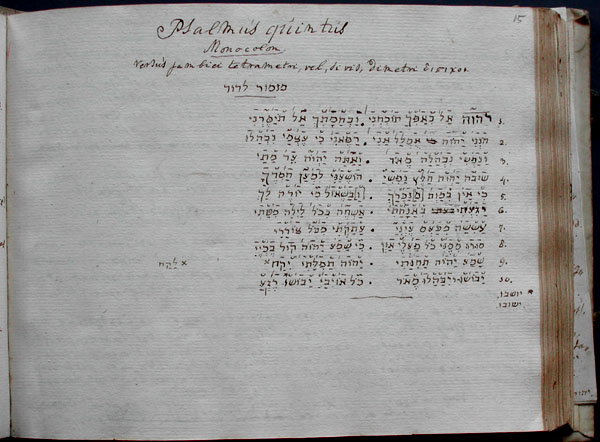 15
Psalmus quintus
Monocolon
Versus jambici tetrametri, vel, si vis, Dimetri δίστιχοι
מזמור לדוד
יהוה אל באפך תוכחני . ובחמתך אל תיסרני 1.
חנני יהוה אמלל אני . רפאני כי עצמי נבהלו 2.
ונפשי נבהלה מאד . ואתה יהוה עד מתי 3.
שובה יהוה חלץ נפשי . הושעני למען חסדך 4.
כי אין במות זכרך . [ו]בשאול כי יודה לך 5.
יגעתי באנחתי . אשחה בכל לילה מטתי 6.
עששה מכעס עיני . עתקתי בכל צוררי 7.
סורו ממני כל פעלי און . כי שמע יהוה קול בכיי 8.
שמע יהוה תחנתי . יהוה תפלתי יקח × 9.
× לקח
יבושו ויבהלו מאד . כל אויבי יבושו רגע 10.
יושבו. *
ישובו.